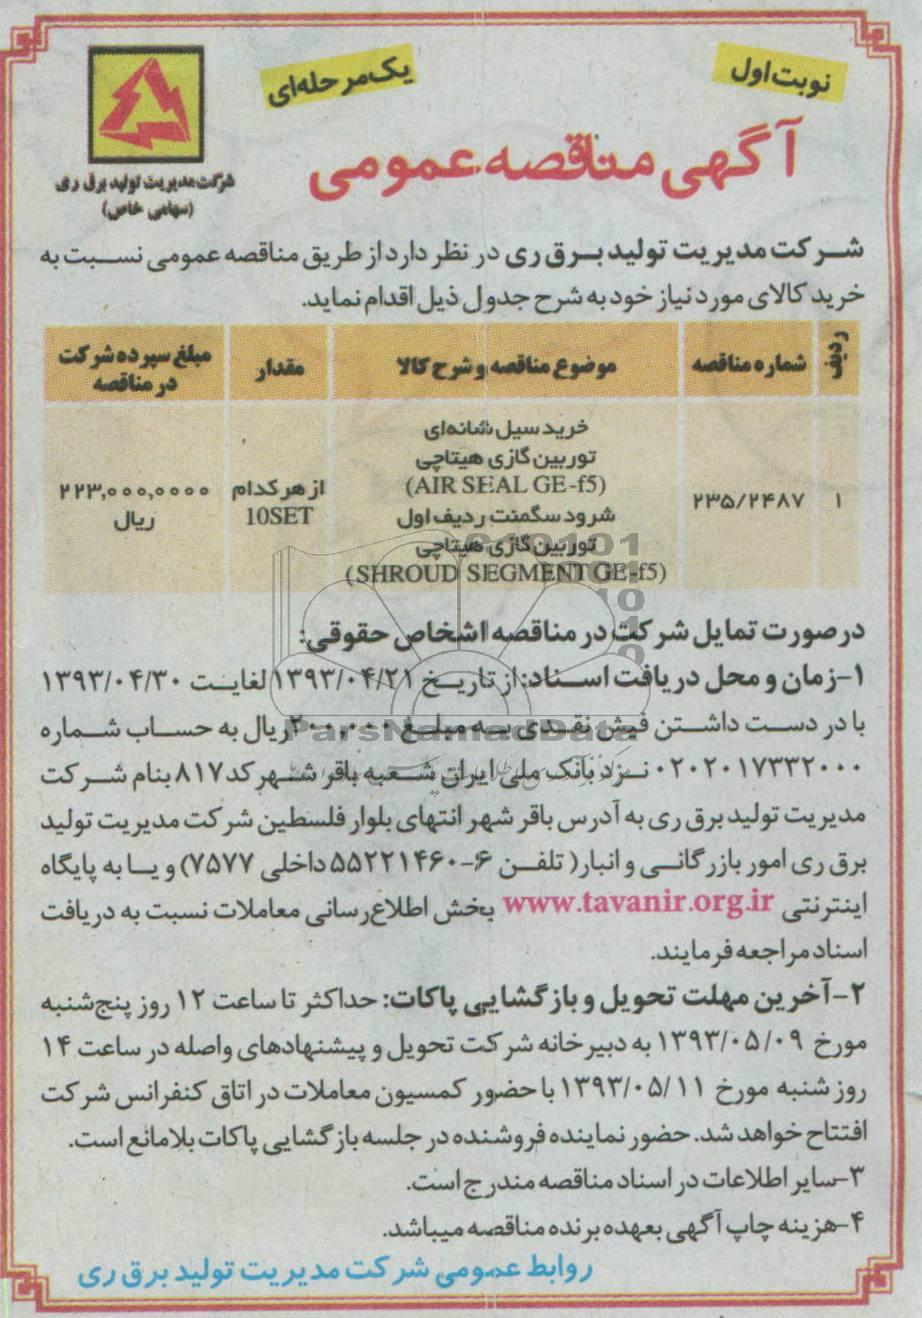 نوبت اول
یک مرحله‌ای
آگهی مناقصه عمومی
شرکت مدیریت تولید برق ری
(سهامی خاص)
شرکت مدیریت تولید برق ری در نظر دارد از طریق مناقصه عمومی نسبت به
خرید کالای مورد نیاز خود به شرح جدول ذیل اقدام نماید.
ردیف
شماره مناقصه
موضوع مناقصه و شرح کالا
مقدار
مبلغ سپرده شرکت
در مناقصه
۱
۲۳۵/۲۴۸۷
خرید سیل شانه‌ای
توربین گازی هیتاچی
(AIR SEAL GE-f5)
شرود سگمنت ردیف اول
توربین گازی هیتاچی
(SHROUD SEGMENT GE-f5)
از هر کدام
10SET
۲۲۳,۰۰۰,۰۰۰۰
ریال
در صورت تمایل شرکت در مناقصه اشخاص حقوقی:
۱-زمان و محل دریافت اسناد: از تاریخ ۱۳۹۳/۰۴/۲۱ لغایت ۱۳۹۳/۰۴/۳۰
با در دست داشتن فیش نقدی به مبلغ ۲۰۰,۰۰۰ ریال به حساب شماره
۰۲۰۲۰۱۷۳۳۲۰۰۰ نزد بانک ملی ایران شعبه باقر شهر کد ۸۱۷ بنام شرکت
مدیریت تولید برق ری به آدرس باقر شهر انتهای بلوار فلسطین شرکت مدیریت تولید
برق ری امور بازرگانی و انبار( تلفن ۶-۵۵۲۲۱۴۶۰ داخلی ۷۵۷۷) و یا به پایگاه
اینترنتی www.tavanir.org.ir بخش اطلاع‌رسانی معاملات نسبت به دریافت
اسناد مراجعه فرمایند.
۲-آخرین مهلت تحویل و بازگشایی پاکات: حداکثر تا ساعت ۱۲ روز پنج‌شنبه
مورخ ۱۳۹۳/۰۵/۰۹ به دبیرخانه شرکت تحویل و پیشنهادهای واصله در ساعت ۱۴
روز شنبه مورخ ۱۳۹۳/۰۵/۱۱ با حضور کمسیون معاملات در اتاق کنفرانس شرکت
افتتاح خواهد شد. حضور نماینده فروشنده در جلسه بازگشایی پاکات بلامانع است.
۳-سایر اطلاعات در اسناد مناقصه مندرج است.
۴-هزینه چاپ آگهی بعهده برنده مناقصه میباشد.
روابط عمومی شرکت مدیریت تولید برق ری
ParsNamadData